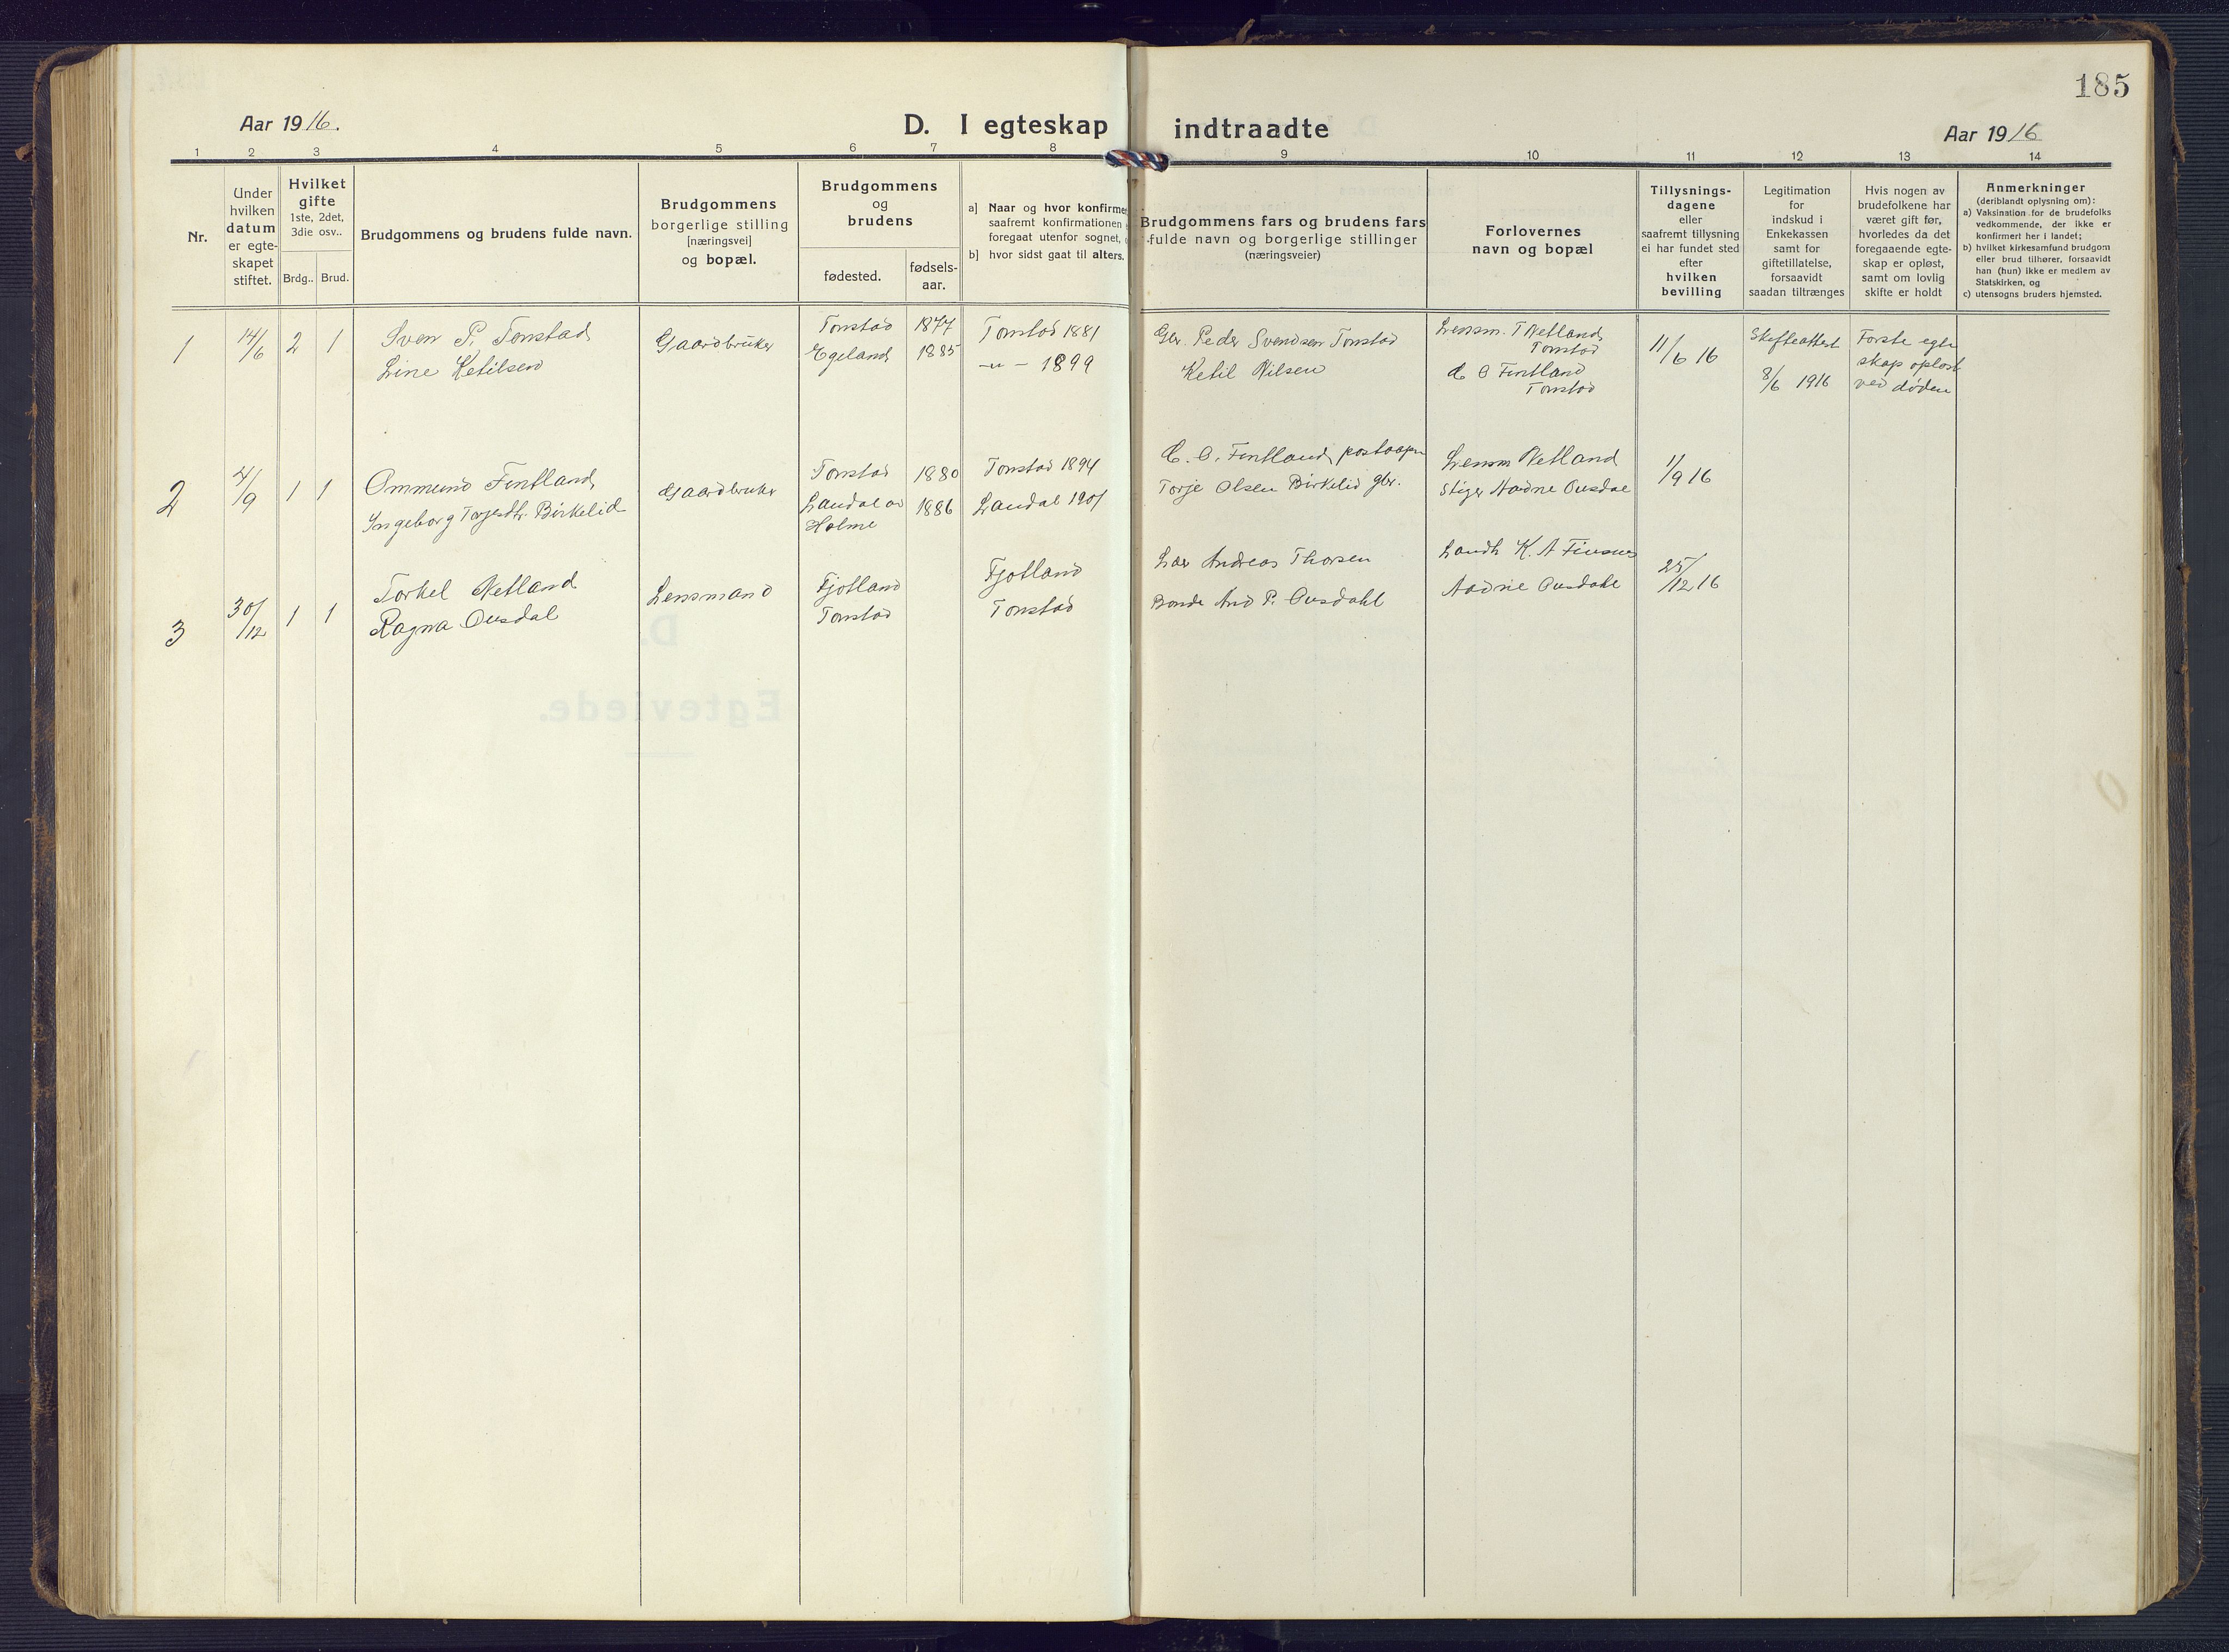 185
Aar 1916.
D. I egteskap indtraadte
Aar 1916
1 2 3 4 5 6 7 8 9 10 11 12 13 14
Nr.
Under
hvilken
datum
er egte-
skapet
stiftet.
Hvilket
gifte
1ste, 2det,
3die osv..
Brdg.. Brud.
Brudgommens og brudens fulde navn.
Brudgommens
borgerlige stilling
[næringsvei]
og bopæl.
Brudgommens
og
brudens
fødested.
fødsels-
aar.
a] Naar og hvor konfirmer
saafremt konfirmationen
foregaat utenfor sognet,
b] hvor sidst gaat til alters.
Brudgommens fars og brudens fars
fulde navn og borgerlige stillinger
(næringsveier)
Forlovernes
navn og bopæl
Tillysnings-
dagene
eller
saafremt tillysning
ei har fundet sted
efter
hvilken
bevilling
Legitimation
for
indskud i
Enkekassen
samt for
giftetillatelse,
forsaavidt
saadan tiltrænges
Hvis nogen av
brudefolkene har
været gift før,
hvorledes da det
foregaaende egte-
skap er opløst,
samt om lovlig
skifte er holdt
Anmerkninger
(deriblandt oplysning om):
a) Vaksination for de brudefolks
vedkommende, der ikke er
konfirmert her i landet;
b) hvilket kirkesamfund brudgom
eller brud tilhører, forsaavidt
han (hun) ikke er medlem av
Statskirken, og
c) utensogns bruders hjemsted.
1
14/6
2 1
Sven P. Tonstad
Line Ketilsen
Gaardbruker
Tonstad 1877
Egeland 1885
Tonstad 1881
-"- 1899
Gbr. Peder Svendsen Tonstad
Ketil Nilsen
Lensm. T Netland
Tonstad
O Fintland
Tonstad
11/6 16
Skifteattest
8/6 1916
Første egte
skap opløst
ved døden
2
4/9
1 1
Ommund Fintland
Ingeborg Torjesdtr. Birkelid
Gaardbruker
Tonstad 1880
Laudal av 1886
Holme
Tonstad 1894
Laudal 1901
O. Fintland postaapn
Torje Olsen Birkelid gbr.
Lensm Netland
Stiger Aadne Ousdal
1/9 16
3
30/12
1 1
Torkel Netland
Ragna Ousdal
Lensmand
Fjotland
Tonstad
Fjotland
Tonstad
Andreas Thorsen
Bonde And P. Ousdahl
Landh K. A
Aadne Ousdahl
25/12 16